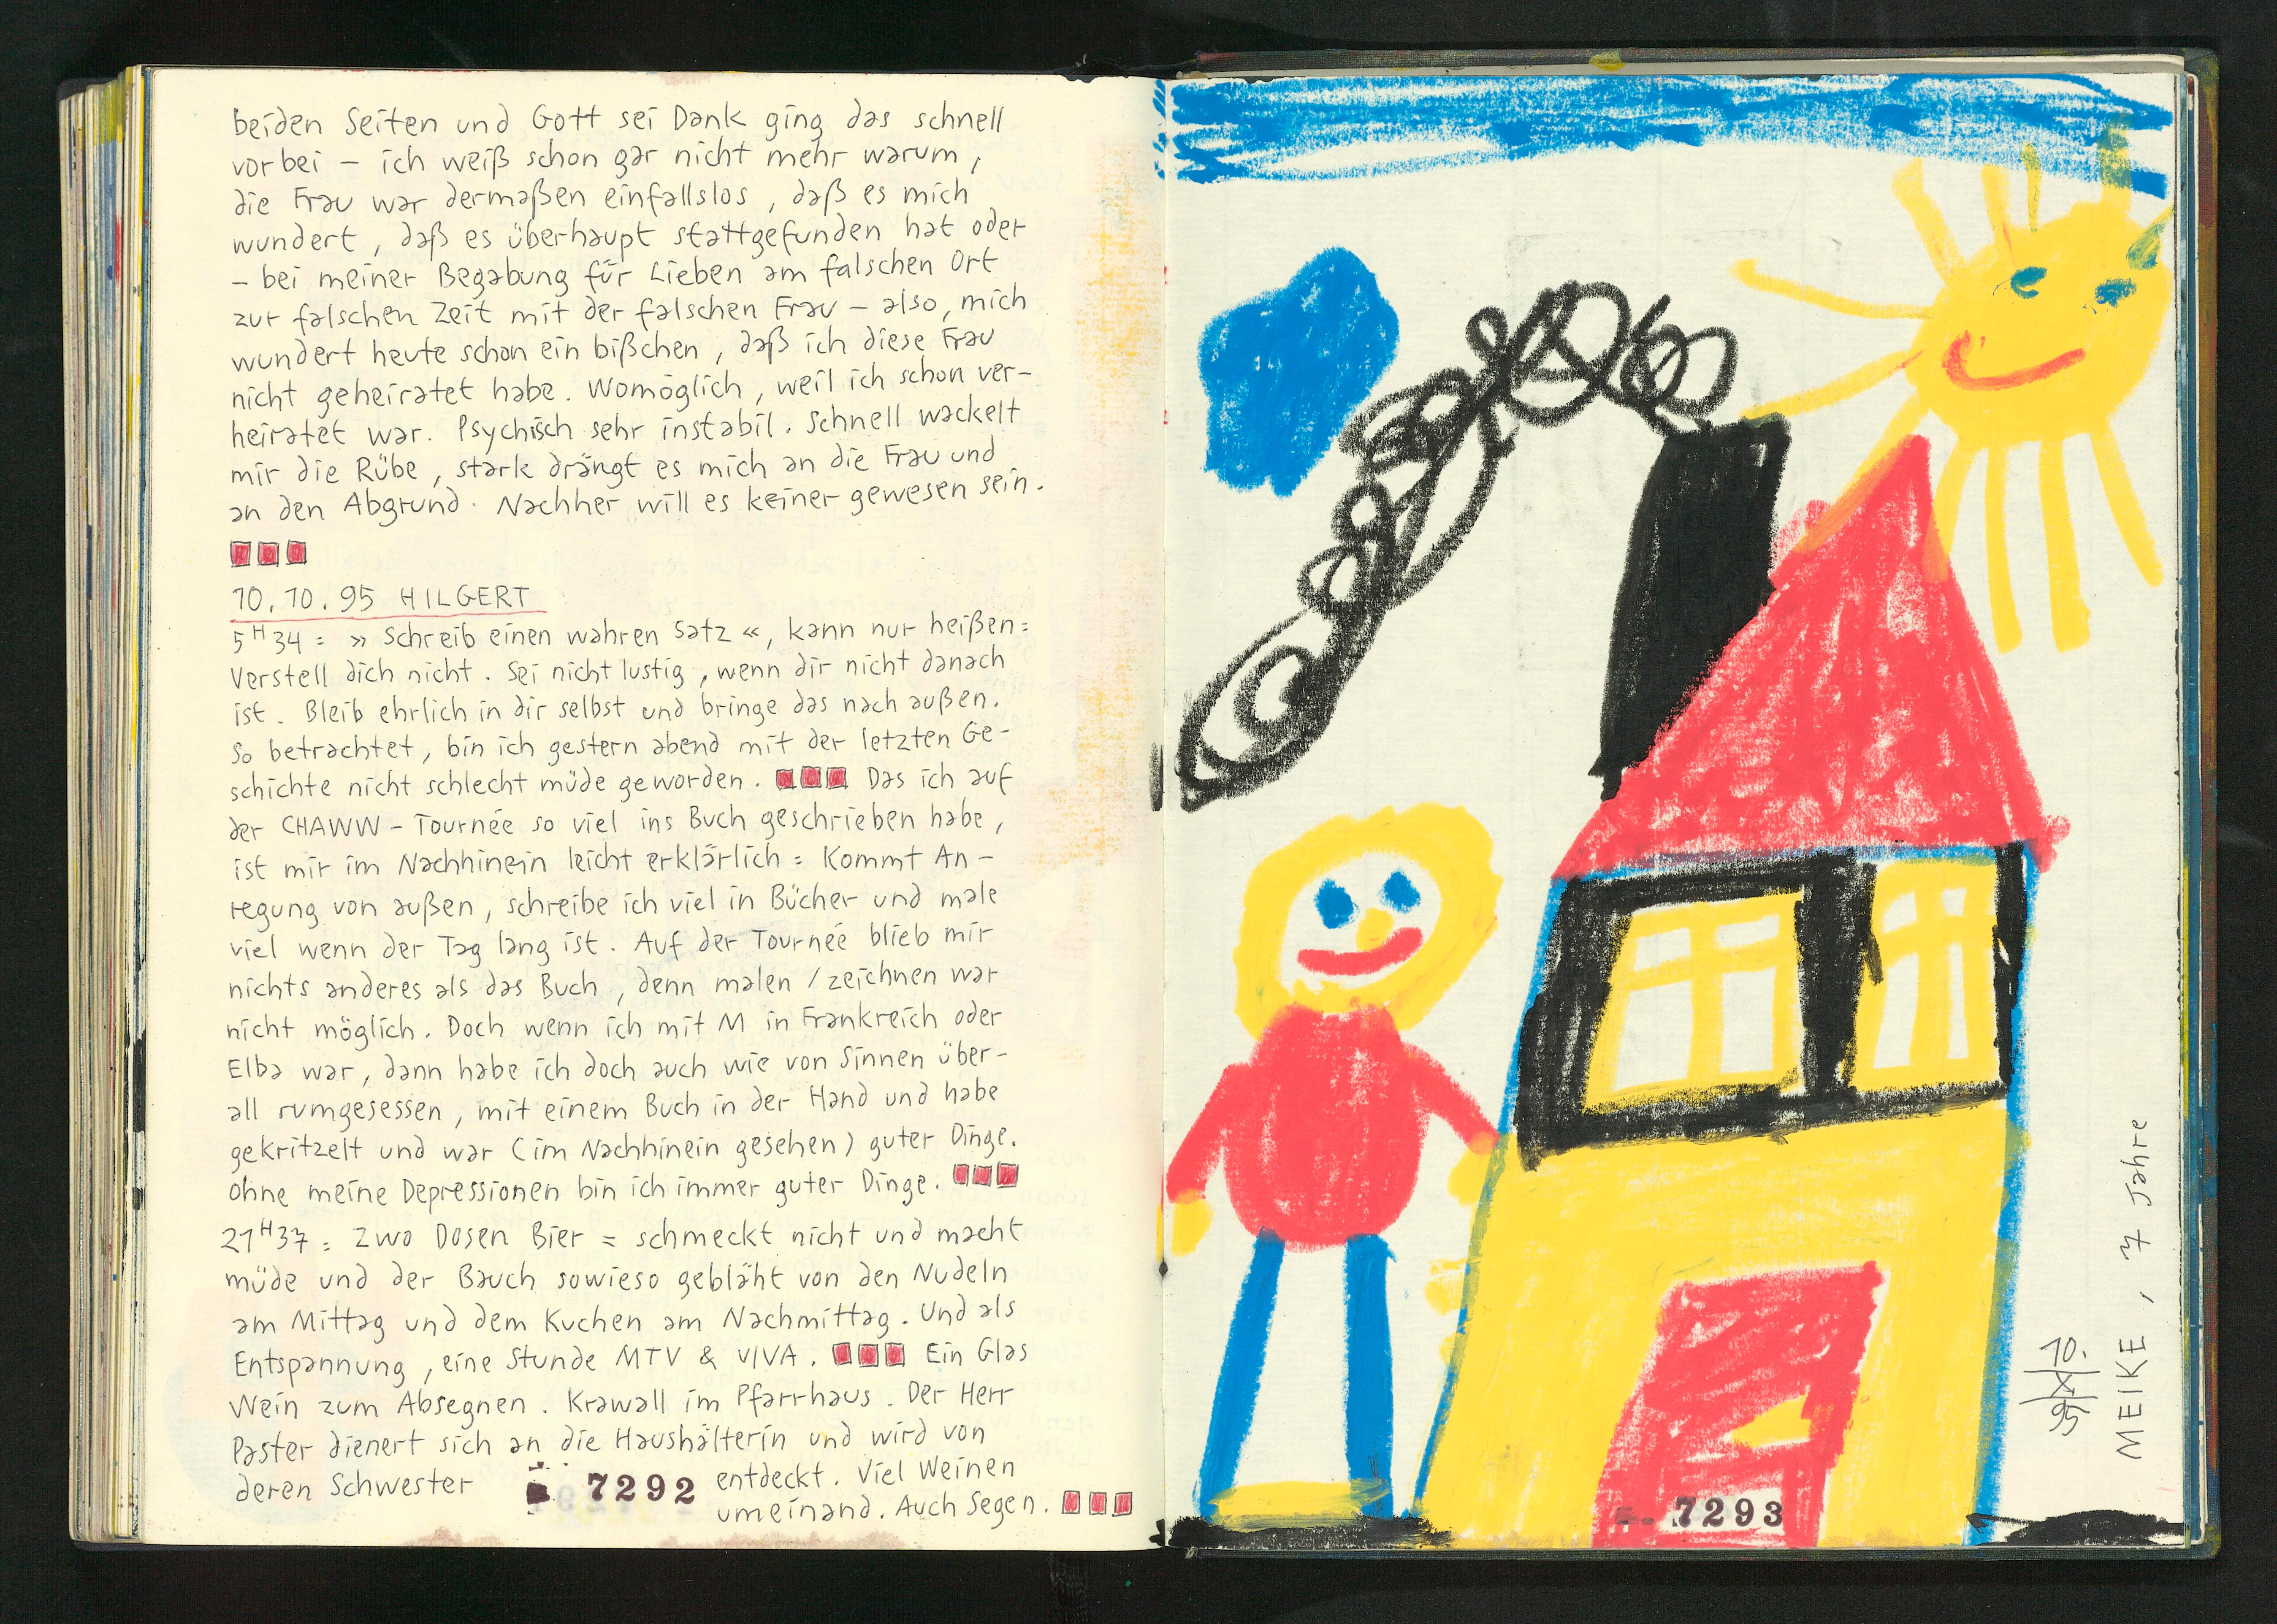 beiden Seiten und Gott sei Dank ging das schnell
vorbei – ich weiß schon gar nicht mehr warum,
die Frau war dermaßen einfallslos, daß es mich
wundert, daß es überhaupt stattgefunden hat oder
– bei meiner Begabung für Lieben am falschen Ort
zur falschen Zeit mit der falschen Frau – also, mich
wundert heute schon ein bißchen, daß ich diese Frau
nicht geheiratet habe. Womöglich, weil ich schon ver-
heiratet war. Psychisch sehr instabil. Schnell wackelt
mir die Rübe, stark drängt es mich an die Frau und
an den Abgrund. Nachher will es keiner gewesen sein.
10.10.95 HILGERT
5H34: »Schreib einen wahren Satz«, kann nur heißen:
Verstell dich nicht. Sei nicht lustig, wenn dir nicht danach
ist. Bleib ehrlich in dir selbst und bringe das nach außen.
So betrachtet, bin ich gestern abend mit der letzten Ge-
schichte nicht schlecht müde geworden. Das ich auf
der CHAWW-Tournée so viel ins Buch geschrieben habe,
ist mir im Nachhinein leicht erklärlich: Kommt An-
regung von außen, schreibe ich viel in Bücher und male
viel wenn der Tag lang ist. Auf der Tournée blieb mir
nichts anderes als das Buch, denn malen/zeichnen war
nicht möglich. Doch wenn ich mit M in Frankreich oder
Elba war, dann habe ich doch auch wie von Sinnen über-
all rumgesessen, mit einem Buch in der Hand und habe
gekritzelt und war (im Nachhinein gesehen) guter Dinge.
Ohne meine Depressionen bin ich immer guter Dinge.
21H37: Zwo Dosen Bier = schmeckt nicht und macht
müde und der Bauch sowieso gebläht von den Nudeln
am Mittag und dem Kuchen am Nachmittag. Und als
Entspannung, eine Stunde MTV & VIVA. Ein Glas
Wein zum Absegnen. Krawall im Pfarrhaus. Der Herr
Paster dienert sich an die Haushälterin und wird von
deren Schwester entdeckt. Viel Weinen
umeinand. Auch Segen.
7292
10.
X
95
MEIKE, 7 Jahre
7293